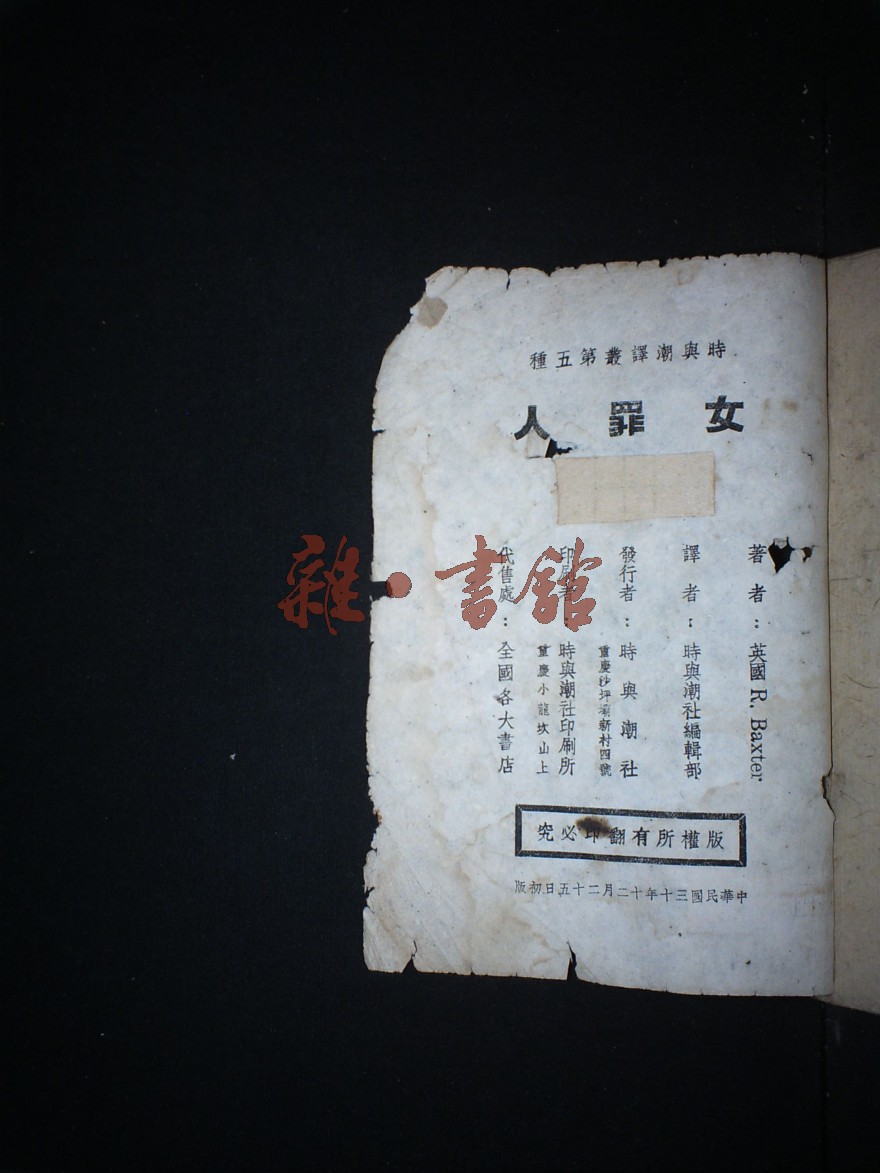 時與潮譯叢第五種
女罪人
著者：英國 R. Baxter
譯者：時與潮社編輯部
發行者：時與潮社
重慶沙坪壩新村四號
印刷者：時與潮社印刷所
重慶小龍坎山上
代售處：全國各大書店
版權所有翻印必究
中華民國三十年十二月二十五日初版
雜·書館